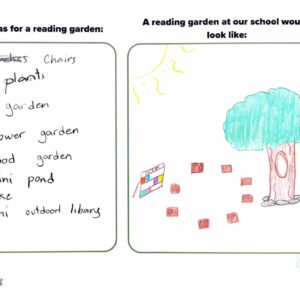 as for a reading garden:
Chairs
plants
garden
ower garden
od garden
ni pond
ke
ni outdoor libary
A reading garden at our school wou
look like: